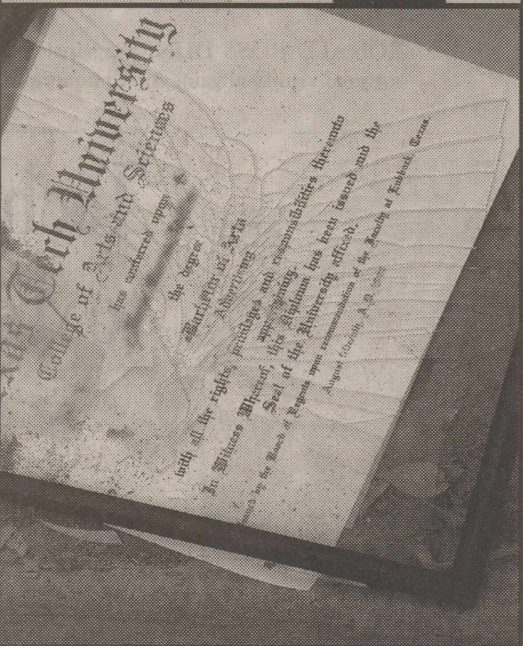 Tech University
College of Arts and Sciences
has conferred upon
the degree
Bachelor of Arts
Advertising
with all the rights, privileges and responsibilities thereunto
appertaining.
In Witness Whereof, this Diploma has been issued and the
Seal of the University affixed.
by the Board of Regents upon recommendation of the Faculty at Lubbock, Texas
August A. D.